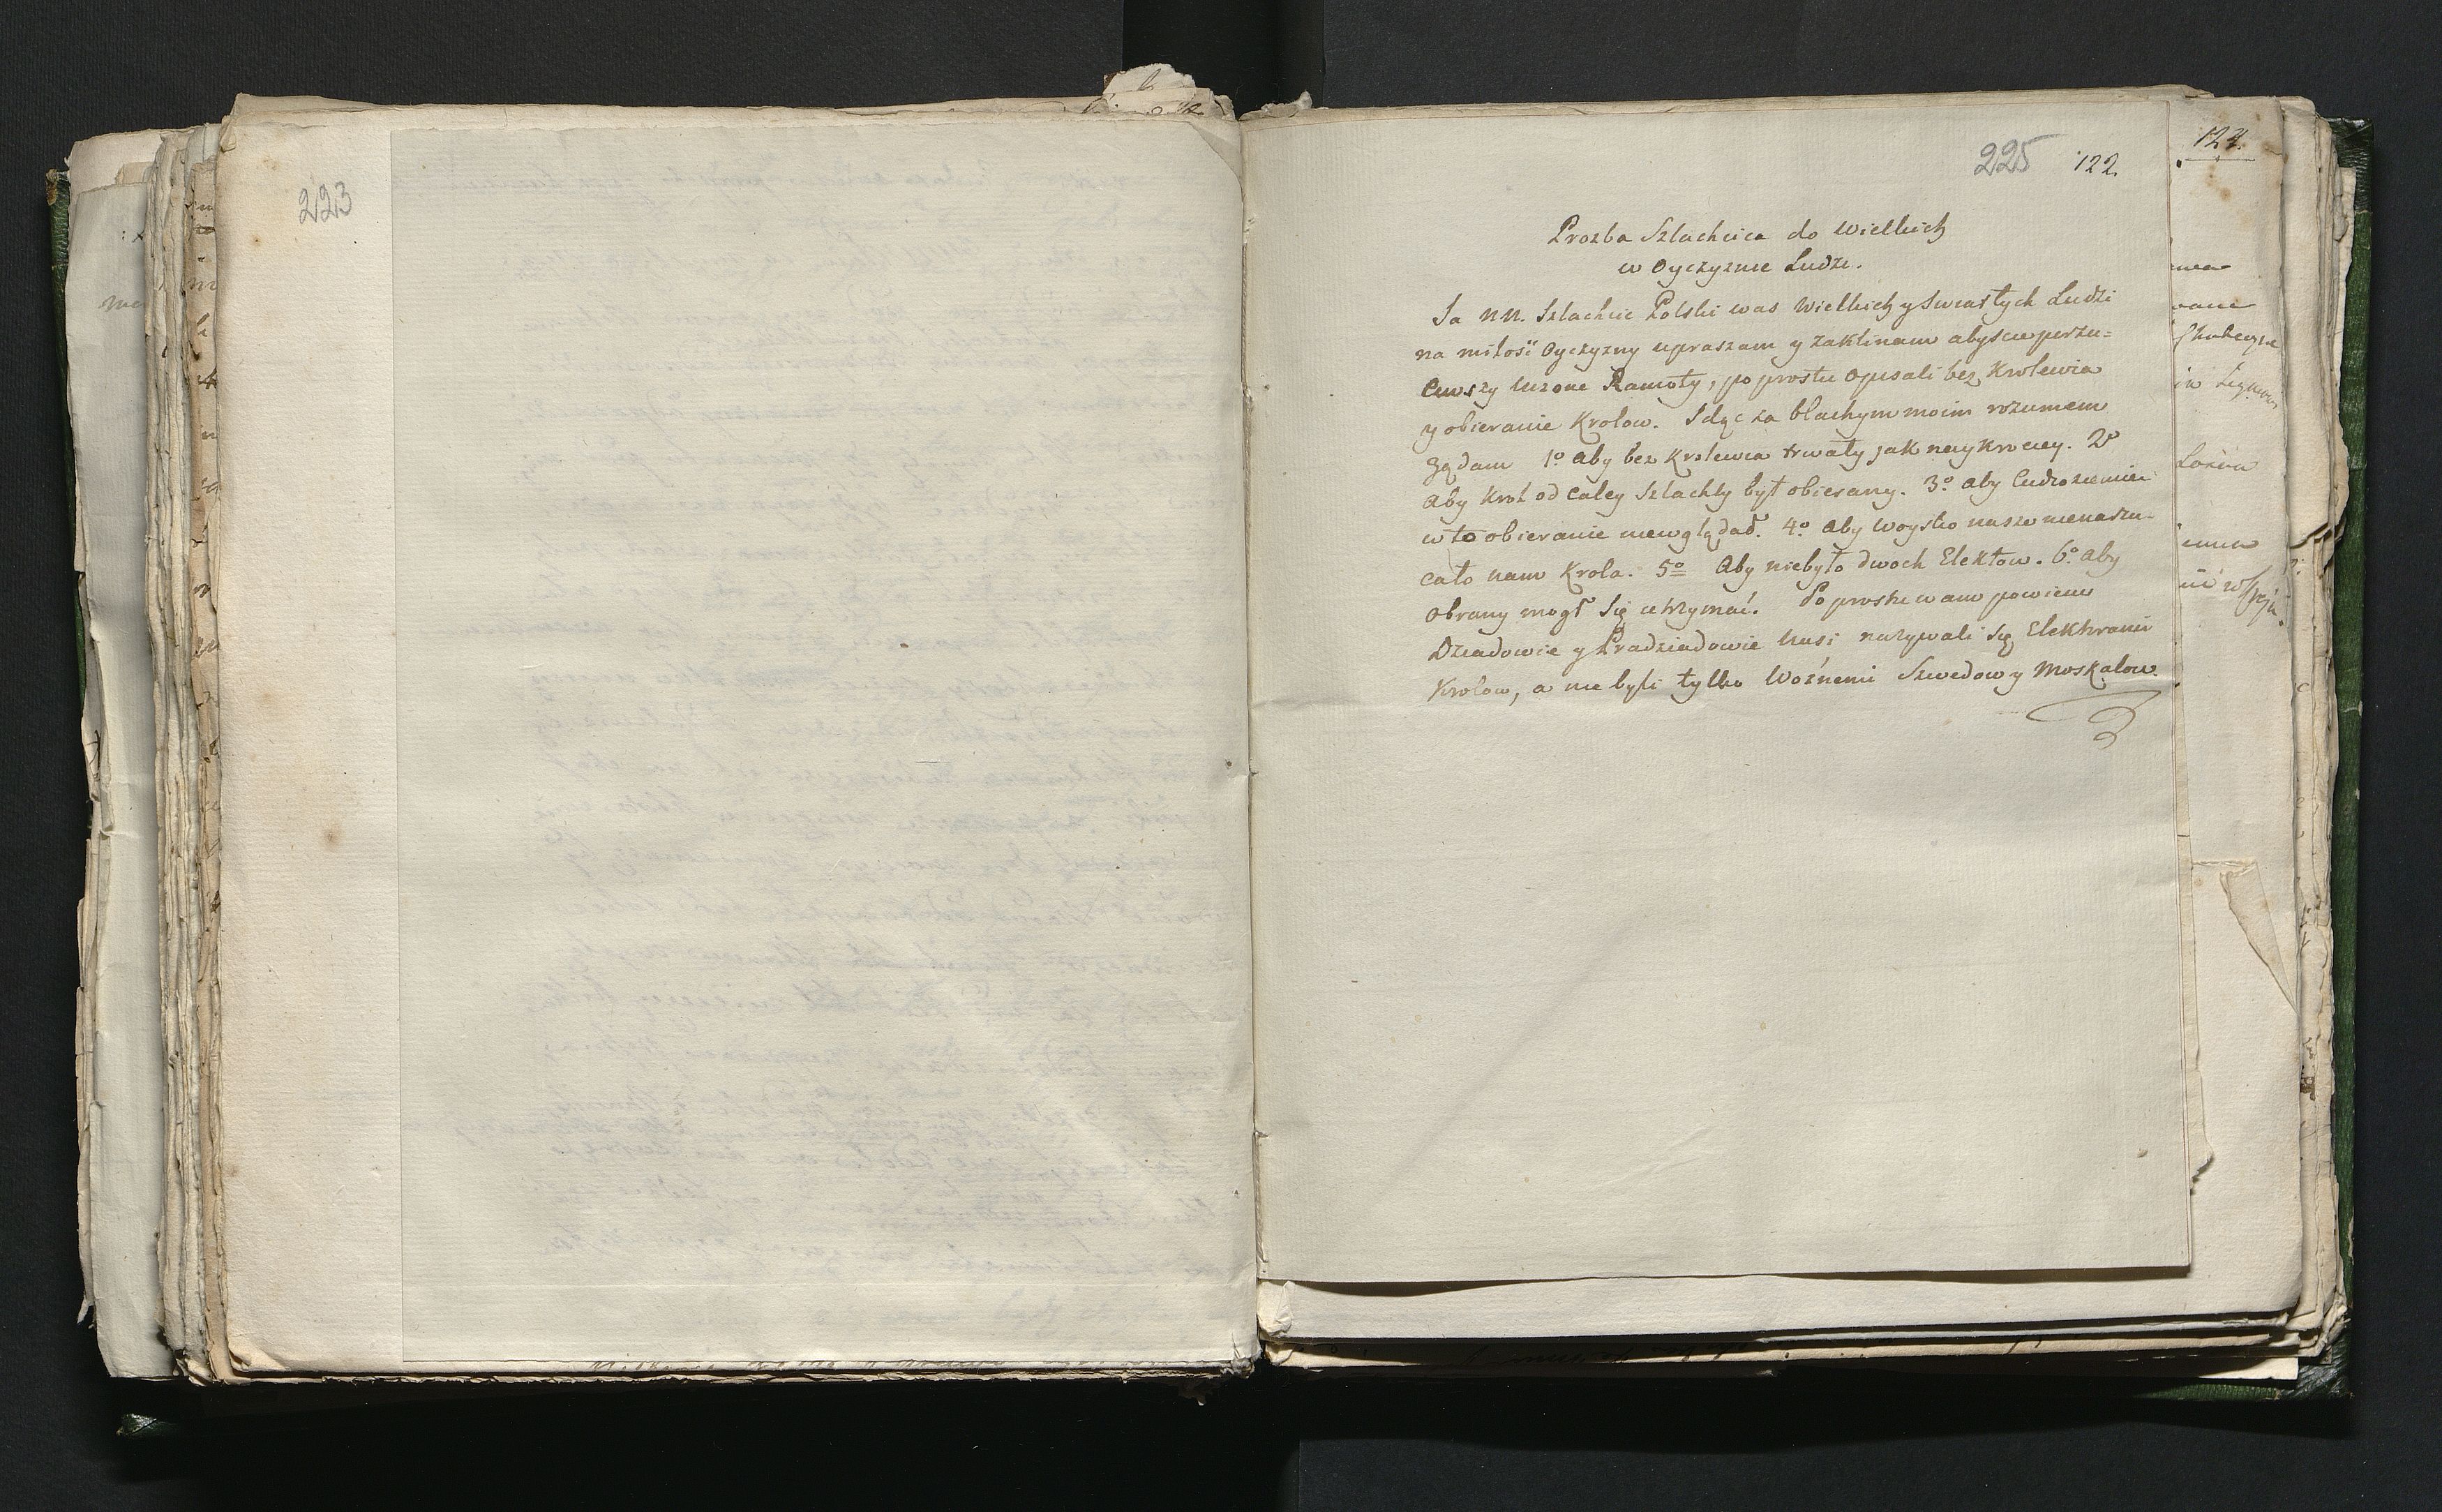 223
225 122.
124.
Prozba Szlachcica do Wielkich
w Oyczyznie Ludzi.
Ja NN. Szlachcic Polski was Wielkich y Swiatłych Ludzi
na miłość Oyczyzny upraszam y zaklinam abyscie porzu=
ciwszy uczone Ramoty, po prostu opisali bez Krolewia
y obieranie Krolow. Idąc za błachym moim rozumem
Ządam 1o Aby bez Krolewia trwały jak naykrocey. 2o
Aby Krol od całey Szlachty był obierany. 3o Aby Cudzoziemiec
w to obieranie niewglądał. 4o Aby Woysko nasze nienarzu-
cało nam Krola. 5o Aby niebyło dwoch Elektow. 6o Aby
obrany mogł się utrzymać. Po prostu wam powiem
Dziadowie y Pradziadowie Nasi nazywali się Elektorami
Krolow, a nie byli tylko Woźnemi Szwedow y Moskalow.